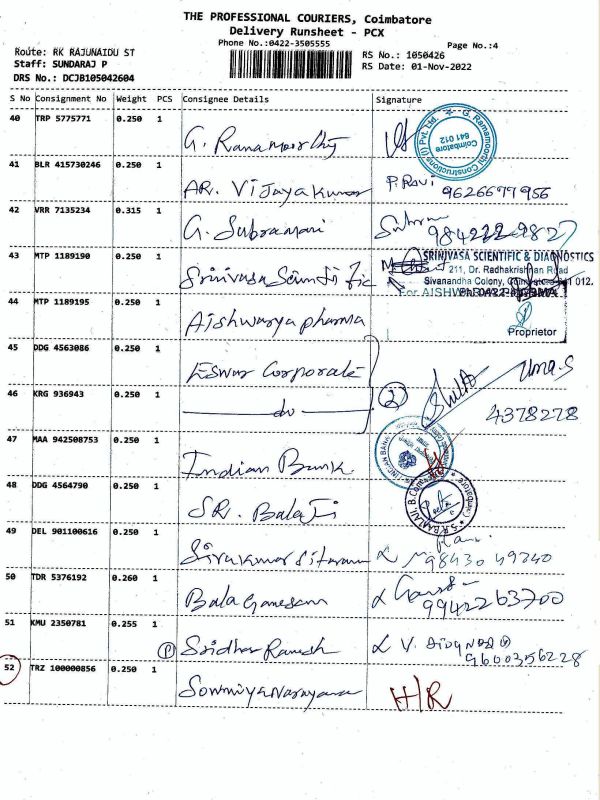 THE PROFESSIONAL COURIERS, Coimbatore
Delivery Runsheet - PCX
Phone No.:0422-3505555
Page No.:4
Route: RK RAJUNAIDU ST
Staff: SUNDARAJ P
DRS No.: DCJB105042604
RS No.: 1050426
RS Date: 01-Nov-2022
S No Consignment No Weight PCS Consignee Details Signature
40 TRP 5775771 0.250 1 G. Ranamoorthy
G. Ramamoorthy Constructions (I) Pvt. Ltd. Coimbatore 641 012
41 BLR 415730246 0.250 1 AR. Vijayakumar P. Ravi
9626699956
42 VRR 7135234 0.315 1 G. Subramani
43 MTP 1189190 0.250 1 Srinivasa Scientific
SRINIVASA SCIENTIFIC & DIAGNOSTICS
211, Dr. Radhakrishnan Road
Sivanandha Colony, Coimbatore 641 012.
44 MTP 1189195 0.250 1 Aishwarya pharma
For AISHWARYA PHARMA
Proprietor
45 DDG 4563086 0.250 1 Eswar Corporate Uma.S
46 KRG 936943 0.250 1 do 2
4378278
47 MAA 942508753 0.250 1 Indian Bank
INDIAN BANK
48 DDG 4564790 0.250 1 SR. Balaji
49 DEL 901100616 0.250 1 Sivakumar Sitaram
98430 49240
50 TDR 5376192 0.260 1 Bala Ganesan
9942263700
51 KMU 2350781 0.255 1 P Sridhar Ramesh
9600356228
52 TRZ 100000856 0.250 1 Sowmiya Narayana H/R